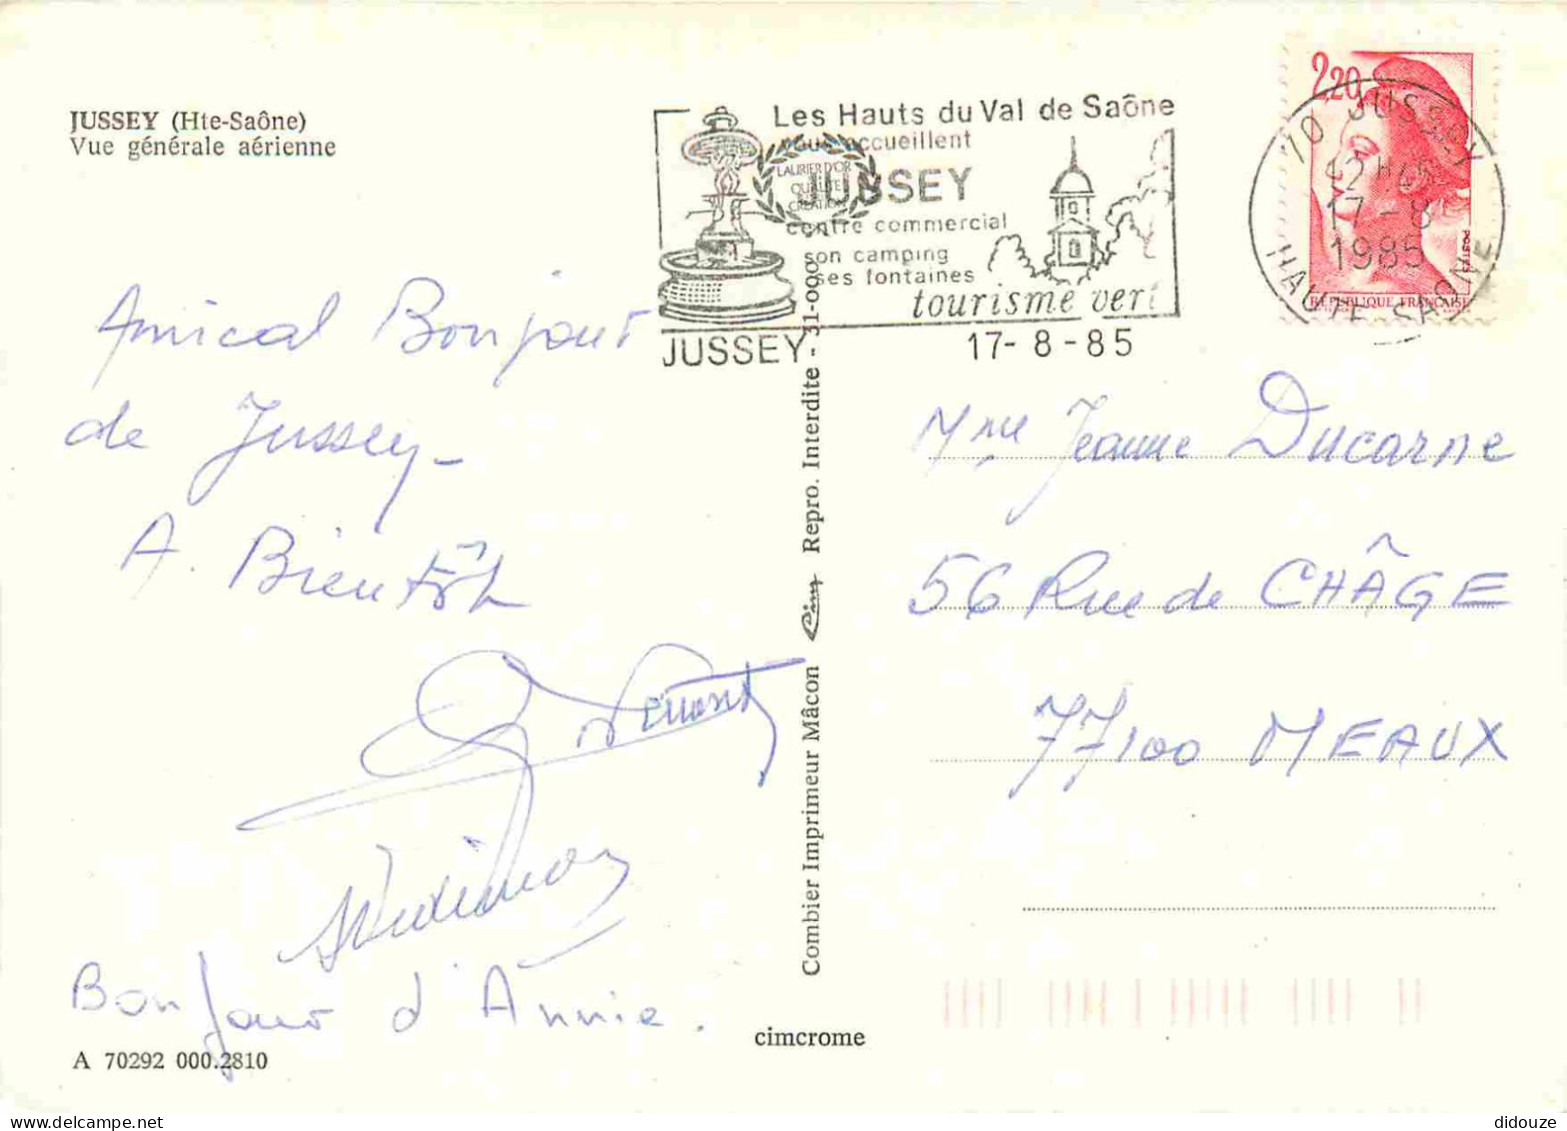 JUSSEY (Hte-Saône)
Vue générale aérienne
Les Hauts du Val de Saône
vous accueillent
JUSSEY
centre commercial
son camping
ses fontaines
tourisme vert
LAURIER D'OR
QUALITE
CREATION
JUSSEY
17-8-85
2,20
POSTES
RÉPUBLIQUE FRANÇAISE
70 JUSSEY
12H45
17-8
1985
HAUTE-SAONE
Amical Bonjour
de Jussey-
A. Bientôt
Bonjour d'Annie.
A 70292 000.2810
Combier Imprimeur Mâcon Cim Repro. Interdite - 31-090
cimcrome
Mme Jeanne Ducarne
56 Rue de CHÂGE
77100 MEAUX
didouze